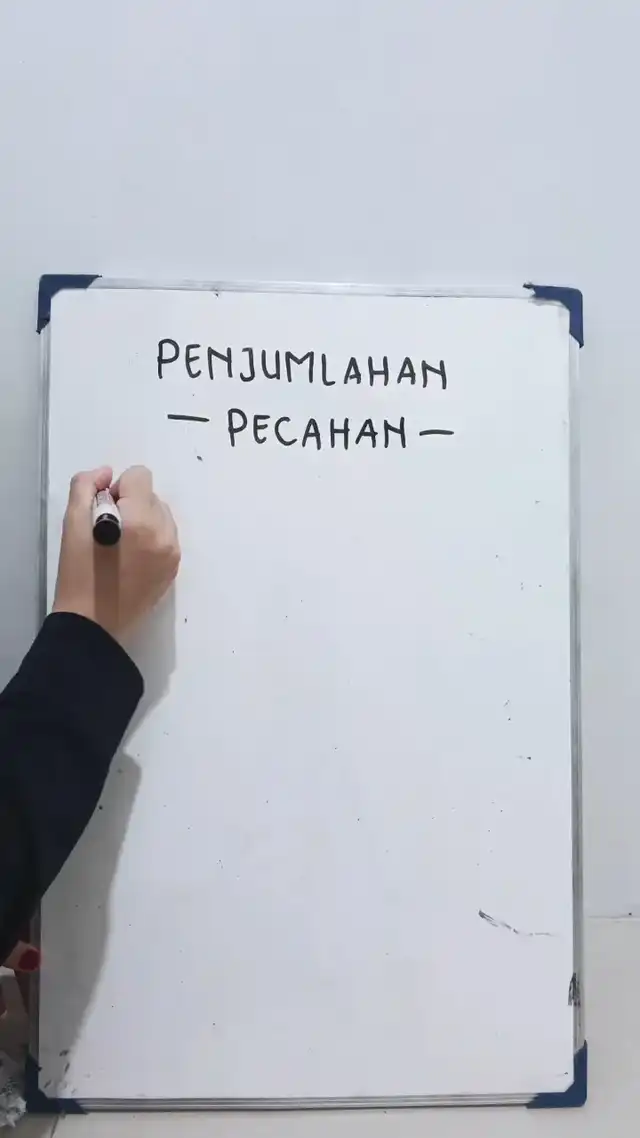 PENJUMLAHAN
— PECAHAN —